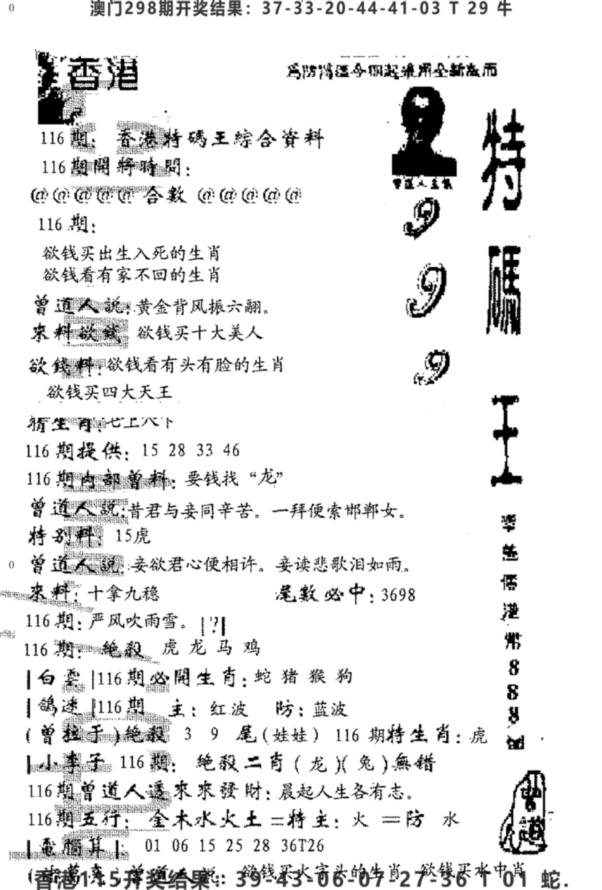 澳门298期开奖结果：37-33-20-44-41-03 T 29 牛
香港
為防搗亂今期起採用全新版面
116期：香港特碼王綜合資料
116期開獎時間：
@@@@@ 合數 @@@@@
116期：
欲钱买出生入死的生肖
欲钱看有家不回的生肖
曾道人説：黄金背风振六翮。
來料欲錢 欲钱买十大美人
欲錢料：欲钱看有头有脸的生肖
欲钱买四大天王
猜生肖：七上八下
116期提供：15 28 33 46
116期内部曾料：要钱找“龙”
曾道人説：昔君与妾同辛苦。一拜便索邯郸女。
特别料：15虎
曾道人説：妾欲君心便相许。妾读悲歌泪如雨。
來料：十拿九稳 尾數必中：3698
116期：严风吹雨雪。|?|
116期：绝殺 虎龙马鸡
|白雲|116期必開生肖：蛇猪猴狗
|鴿迷|116期 主：红波 防：蓝波
(曾拉于)絶殺 3 9 尾(娃娃) 116期特生肖：虎
|小李子 116期：绝殺二肖(龙)(兔)無錯
116期曾道人透來來發財：晨起人生各有志。
116期五行：金木水火土=特主：火=防 水
|電腦算|：01 06 15 25 28 36T26
曾道人：欲钱买火字头的生肖 欲钱买水中肖
香港115开奖结果：39-43-06-07-27-36 T 01 蛇.
特碼王
999
曾道人主集
港幣888
曾道